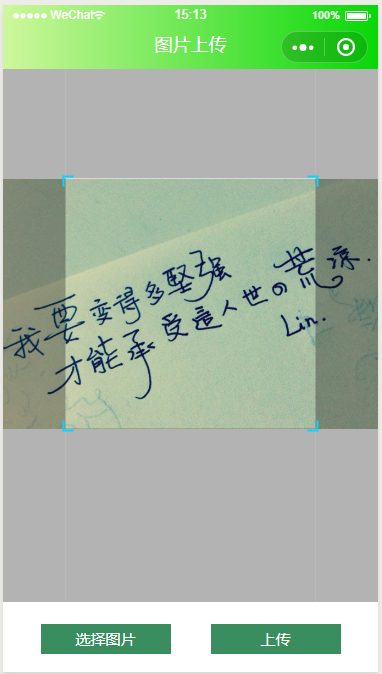 WeChat 15:13 100%
图片上传
我要变得多堅强
才能承受這人世の荒涼.
Lin.
选择图片 上传